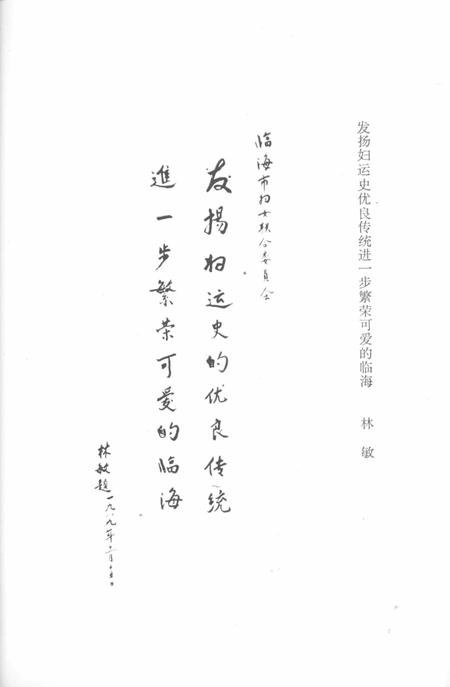 发扬妇运史优良传统进一步繁荣可爱的临海　林　敏
临海市妇女联合委员会
发揚妇运史的优良传统
進一步繁荣可爱的临海
林敏题一九八九年二月